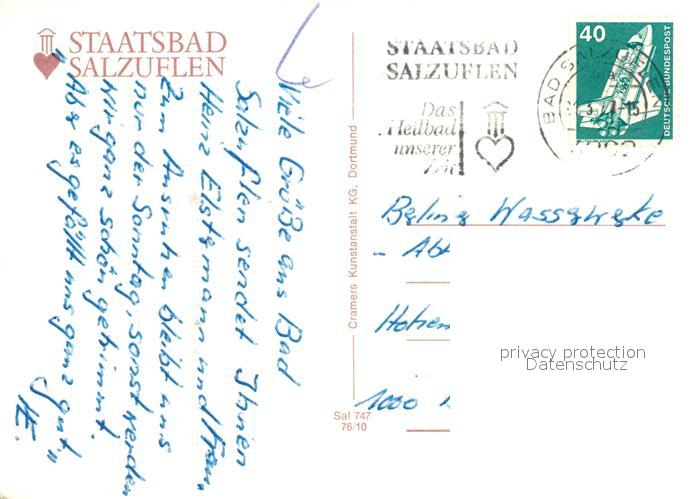 STAATSBAD
SALZUFLEN
Viele Grüße aus Bad
Salzuflen sendet Ihnen
Heinz Elstermann und Frau.
Zum Ausruhen bleibt uns
nur der Sonntag, sonst werden
wir ganz schön getrimmt.
"Aber es gefällt uns ganz gut"
HE.
Cramers Kunstanstalt KG, Dortmund
Sal 747
76/10
STAATSBAD
SALZUFLEN
Das
Heilbad
unserer
Zeit
BAD SALZUFLEN
40
DEUTSCHE BUNDESPOST
Berliner Wasserwerke
- Abt
Hohen
1000
privacy protection
Datenschutz